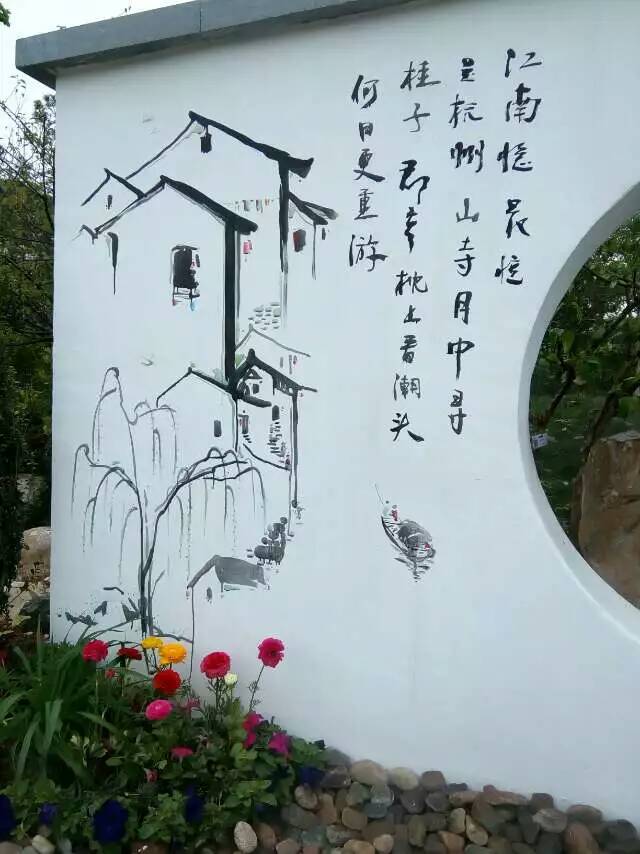 江南憶最忆
是杭州山寺月中寻
桂子郡亭枕上看潮头
何日更重游